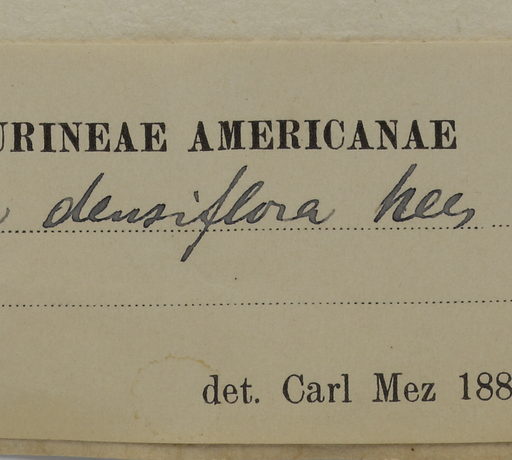 URINEAE AMERICANAE
densiflora Nees
det. Carl Mez 188